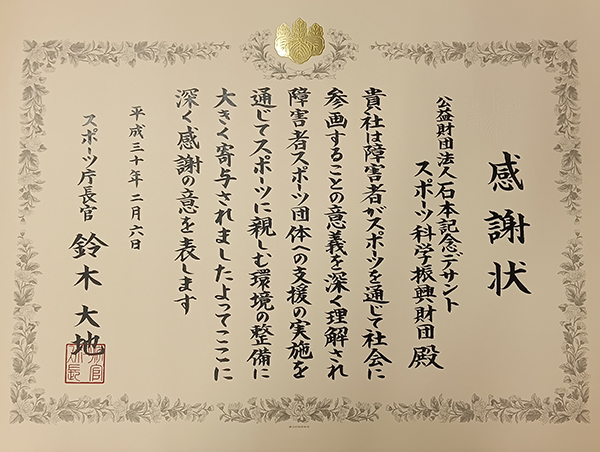 感謝状
公益財団法人石本記念デサント
スポーツ科学振興財団 殿
貴社は障害者がスポーツを通じて社会に
参画することの意義を深く理解され
障害者スポーツ団体への支援の実施を
通じてスポーツに親しむ環境の整備に
大きく寄与されましたよってここに
深く感謝の意を表します
平成三十年二月六日
スポーツ庁長官 鈴木大地